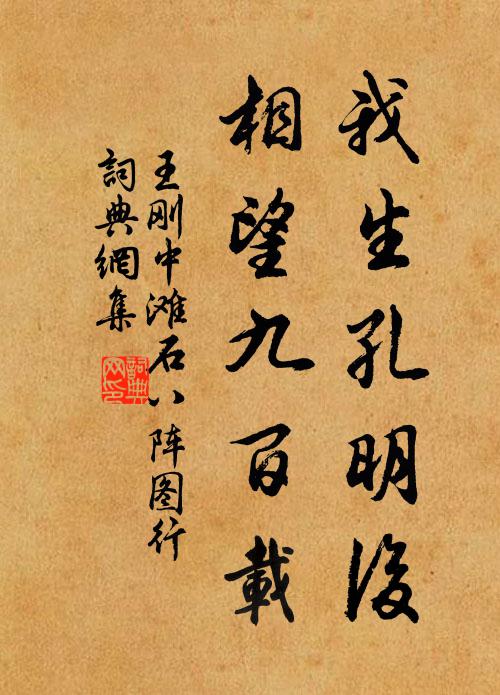 我生孔明後
相望九百載
王刚中滩石八阵图行
詞典網集
詞典網印